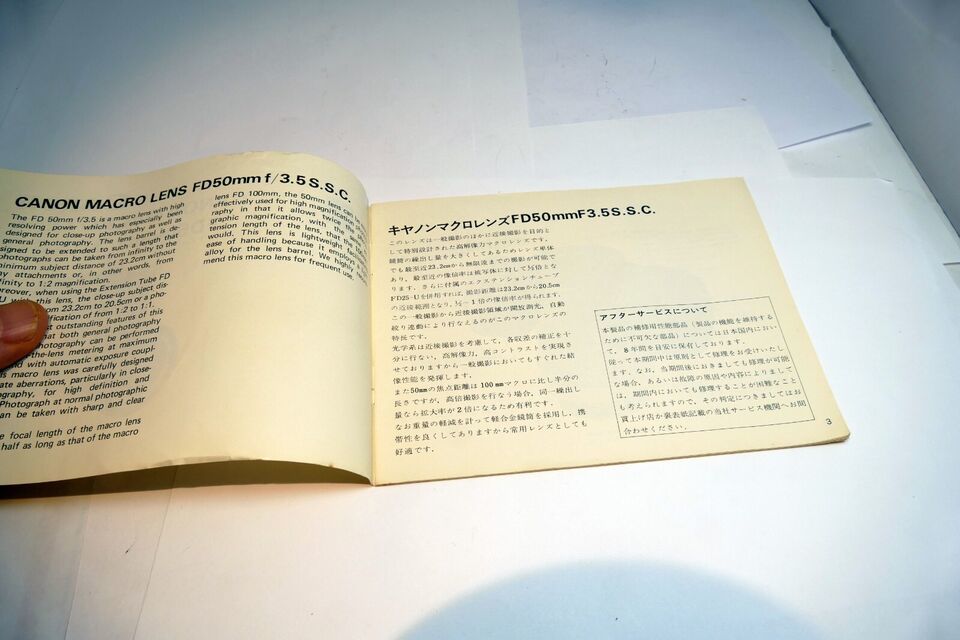 CANON MACRO LENS FD50mm f/3.5 S.S.C.
The FD 50mm f/3.5 is a macro lens with high
resolving power which has especially been
designed for close-up photography as well as
general photography. The lens barrel is de-
signed to be extended to such a length that
photographs can be taken from infinity to the
minimum subject distance of 23.2cm without
any attachments or, in other words, from
infinity to 1:2 magnification.
Moreover, when using the Extension Tube FD
U with this lens, the close-up subject dis-
from 23.2cm to 20.5cm or a pho-
magnification of from 1:2 to 1:1.
outstanding features of this
that both general photography
photography can be performed
-the-lens metering at maximum
and with automatic exposure coupl-
this macro lens was carefully designed
aberrations, particularly in close-
photography, for high definition and
Photograph at normal photographic
can be taken with sharp and clear
focal length of the macro lens
half as long as that of the macro
lens FD 100mm, the 50mm lens can be
effectively used for high magnification
raphy in that it allows twice the
graphic magnification, with the same
tension length of the lens, than the
would. This lens is lightweight for
ease of handling because it employs
alloy for the lens barrel. We highly
mend this macro lens for frequent use.
キヤノンマクロレンズFD50mmF3.5S.S.C.
このレンズは一般撮影のほかに近接撮影を目的と
して特別設計された高解像力マクロレンズです。
鏡筒の繰出し量を大きくしてあるためレンズ単体
でも最至近23.2cmから無限遠までの撮影が可能で
あり、最至近の像倍率は被写体に対して½倍とな
ります。さらに付属のエクステンションチューブ
FD25-Uを併用すれば、撮影距離は23.2cmから20.5cm
の近接範囲となり、½～1倍の像倍率が得られます。
この一般撮影から近接撮影領域が開放測光、自動
絞り連動により行なえるのがこのマクロレンズの
特長です。
光学系は近接撮影を考慮して、各収差の補正を十
分に行ない、高解像力、高コントラストを実現さ
せておりますから一般撮影においてもすぐれた結
像性能を発揮します。
また50mmの焦点距離は100mmマクロに比し半分の
長さですが、高倍撮影を行なう場合、同一繰出し
量なら拡大率が2倍になるため有利です。
なお重量の軽減を計って軽合金鏡筒を採用し、携
帯性を良くしてありますから常用レンズとしても
好適です。
アフターサービスについて
本製品の補修用性能部品（製品の機能を維持する
ために不可欠な部品）については日本国内におい
て、8年間を目安に保有しております。
従って本期間中は原則として修理をお受けいたし
ます。なお、当期間後におきましても修理が可能
な場合、あるいは故障の原因や内容によりまして
は、期間内においても修理することが困難なこと
も考えられますので、その判定につきましてはお
買上げ店か裏表紙記載の当社サービス機関へお問
合わせください。
3